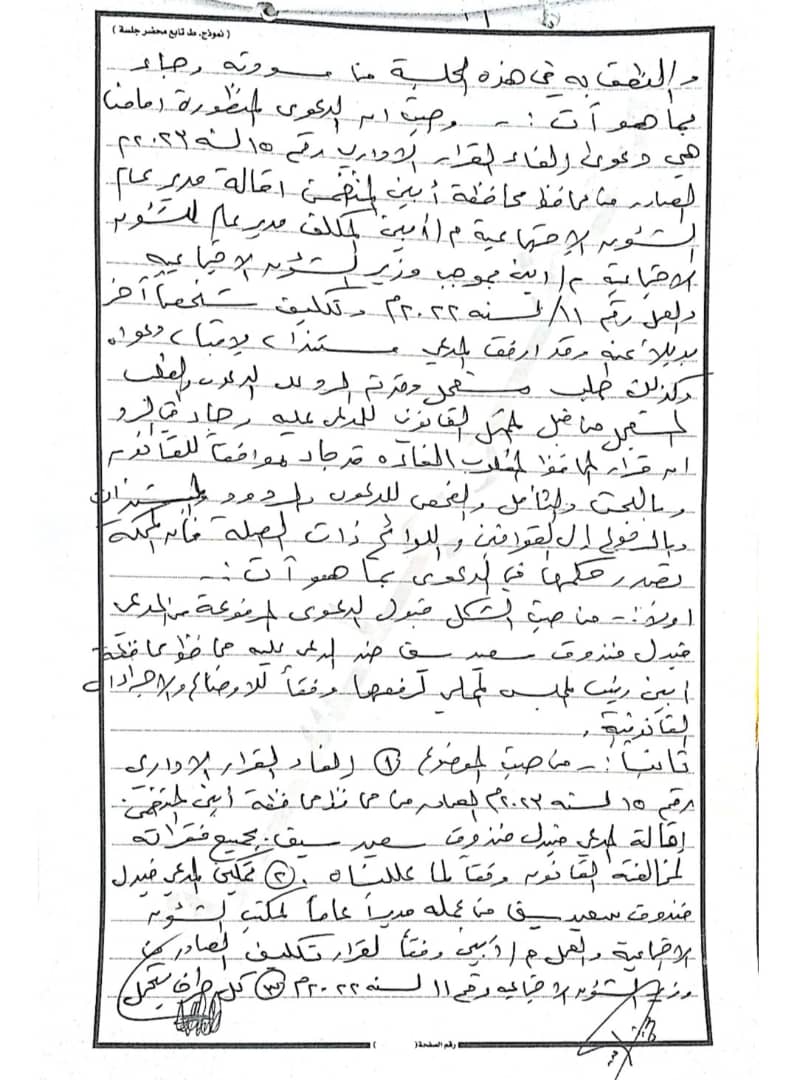 ( نموذج، مد تابع محضر جلسة )
والنطق به في هذه الجلسة من مسودته وجاء
بما هو آت :- وحيث ان الدعوى المنظورة امامنا
هي دعوى الغاء القرار الاداري رقم ١٥ لسنة ٢٠٢٣م
الصادر من محافظ محافظة أبين المتضمن اقالة مدير عام
الشئون الإجتماعية م/أبين المكلف مدير عام للشئون
الاجتماعية م/ابين بموجب وزير الشئون الاجتماعية
والعمل رقم ١١/ لسنة ٢٠٢٢م وتكليف شخصاً آخر
بديلاً عنه وقد ارفق المدعي مستندات لاثبات دعواه
وكذلك طلب مستعجل وقدم الرد على الدعوى والطلب
المستعجل من قبل الممثل القانوني للمدعى عليه وجاء في الرد
ان قرار المحافظ المطلوب الغائه قد جاء موافقاً للقانون
وبالبحث والتأمل والفحص للدعوى والردود والمستندات
وبالرجوع إلى القوانين واللوائح ذات الصلة فأن المحكمة
تصدر حكمها في الدعوى بما هو آت :-
اولاً :- من حيث الشكل قبول الدعوى المرفوعة من المدعي
صندوق سعيد ضد المدعى عليه محافظ محافظة
أبين رئيس المجلس المحلي لرفعها وفقاً للاوضاع والاجراءات
القانونية .
ثانياً :- من حيث الموضوع ① الغاء القرار الاداري
رقم ١٥ لسنة ٢٠٢٣م الصادر من محافظ محافظة أبين المتضمن
إقالة المدعي صندوق سعيد بجميع فقراته
لمخالفته القانون وفقاً لما عللناه . ② تمكين المدعي
صندوق سعيد من عمله مديراً عاماً لمكتب الشئون
الاجتماعية والعمل م/أبين وفقاً لقرار تكليف الصادر من
وزير الشئون الاجتماعية رقم ١١ لسنة ٢٠٢٢م ③ كل طرف يتحمل
رقم الصفحة( )